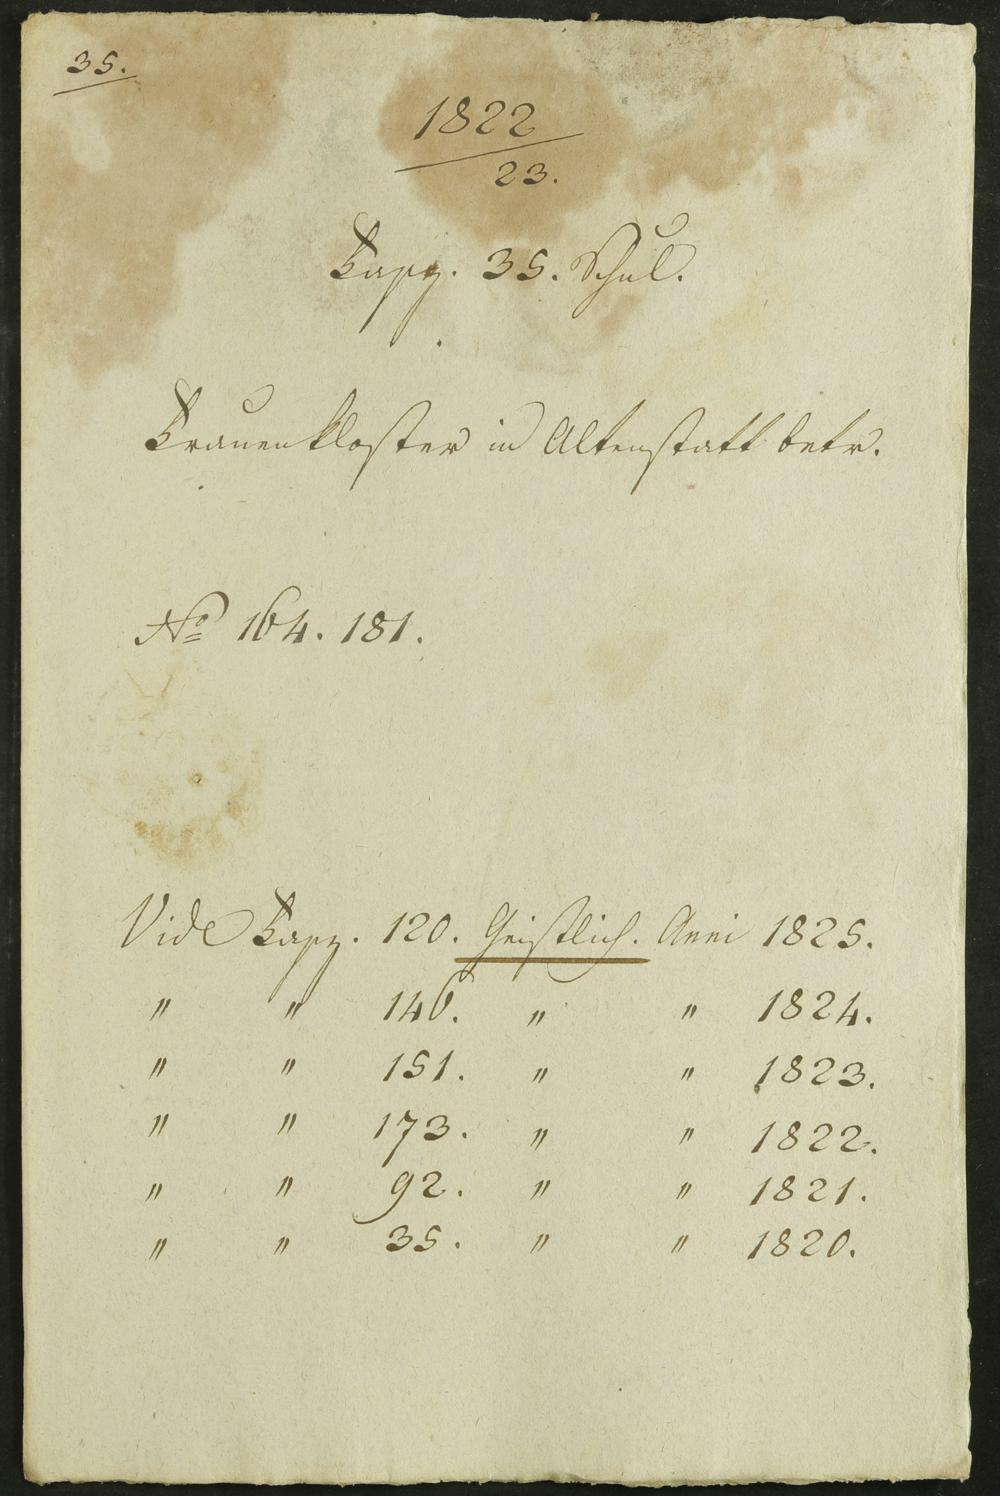 35.
1822
23.
Fasz. 35. Schul.
Frauenkloster in Altenstatt betr.
No 164. 181.
Vide Fasz. 120. Geistlich. Anni 1825.
" " 146. " " 1824.
" " 151. " " 1823.
" " 173. " " 1822.
" " 92. " " 1821.
" " 35. " " 1820.